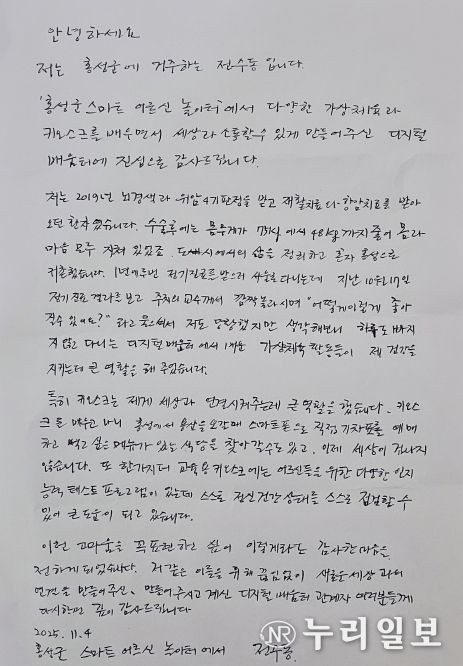 안녕하세요
저는 홍성군에 거주하는 전수동입니다.
'홍성군 스마트 어르신 놀이터'에서 다양한 가상체육과
키오스크를 배우면서 세상과 소통할수 있게 만들어주신 디지털
배움터에 진심으로 감사드립니다.
저는 2019년 뇌경색과 위암4기판정을 받고 재활치료와 항암치료를 받아
오던 환자였습니다. 수술후에는 몸무게가 78kg에서 48kg까지 줄어 몸과
마음 모두 지쳐 있었죠. 도시에서의 삶을 정리하고 혼자 홍성으로
귀촌했습니다. 1년에 두번 정기진료를 받으러 서울로 다니는데 지난 10월17일
정기진료 결과를 보고 주치의 교수께서 깜짝놀라시며 "어떻게이렇게 좋아
질수 있어요?" 라고 물으셔서 저도 당황했지만 생각해보니 하루도 빠지
지 않고 다니는 디지털배움터에서 배운 가상체육 활동들이 제 건강을
지키는데 큰 역할을 해 주었습니다.
특히 키오스크는 제게 세상과 연결시켜주는데 큰 역할을 했습니다. 키오스
크를 배우고 나니 홍성에서 용산을 오갈때 스마트폰으로 직접 기차표를 예매
하고 먹고 싶은 메뉴가 있는 식당을 찾아갈수도 있고, 이제 세상이 겁나지
않습니다. 또 한가지더 교육용키오스크에는 어르신들을 위한 다양한 인지
능력 테스트 프로그램이 있는데 스스로 정신건강상태를 스스로 점검할 수
있어 큰 도움이 되고 있습니다.
이런 고마움을 꼭 표현하고 싶어 이렇게라도 감사한 마음을
전하게 되었습니다. 저 같은 이들을 위해 끊임없이 새로운세상과의
연결을 만들어주신, 만들어주시고 계신 디지털 배움터 관계자 여러분들께
다시한번 깊이 감사드립니다
2025. 11. 4
홍성군 스마트 어르신 놀이터에서 전수동
NR 누리일보